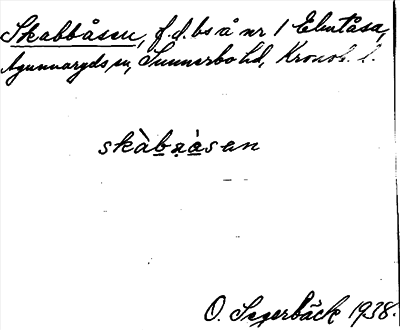 Skabbåsen, f.d. bs å nr 1 Elmtåsa,
Agunnaryds sn, Sunnerbo hd, Kronob. l.
skàb̲ṇàsen
O. Segerbäck 1938.